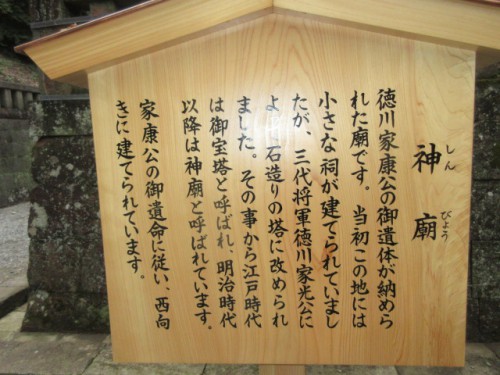 神廟
しん びょう
徳川家康公の御遺体が納めら
れた廟です。当初この地には
小さな祠が建てられていまし
たが、三代将軍徳川家光公に
よ 石造りの塔に改められ
ました。その事から江戸時代
は御宝塔と呼ばれ、明治時代
以降は神廟と呼ばれています。
家康公の御遺命に従い、西向
きに建てられています。